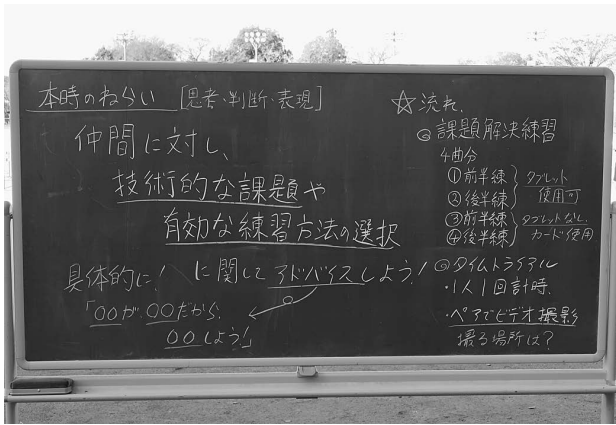 本時のねらい [思考・判断・表現]
仲間に対し、
技術的な課題や
有効な練習方法の選択
に関してアドバイスしよう!
具体的に!
「〇〇が、〇〇だから、
〇〇しよう!」
☆流れ
◎課題解決練習
4曲分
①前半練
②後半練
タブレット
使用可
③前半練
④後半練
タブレットなし、
カード使用
◎タイムトライアル
・1人1回計時.
・ペアでビデオ撮影
撮る場所は?